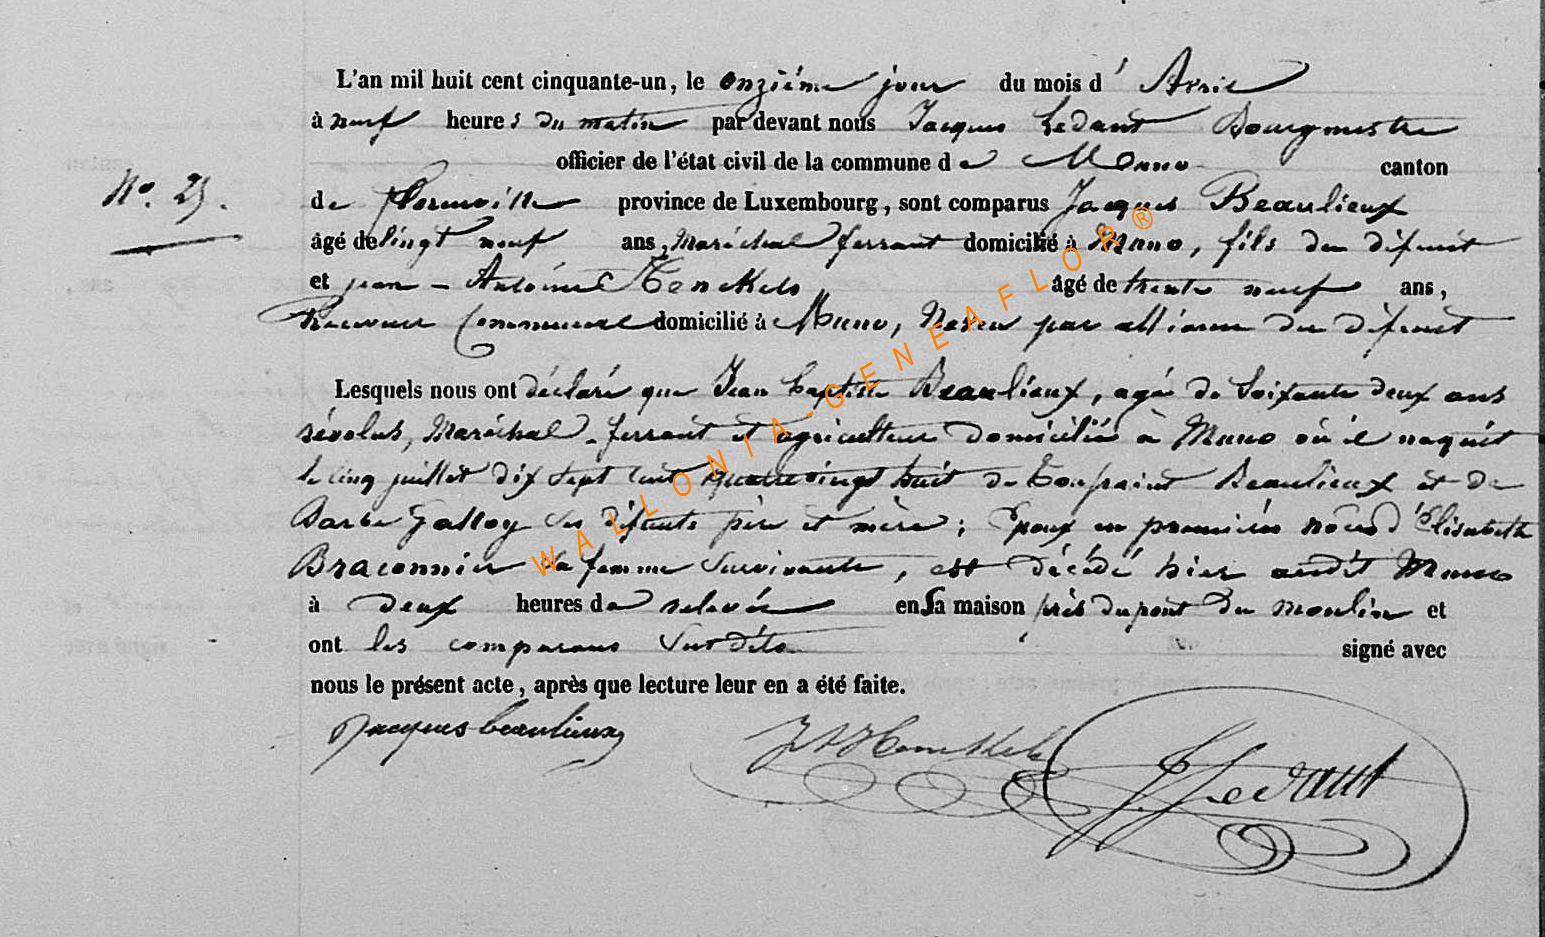 L'an mil huit cent cinquante-un, le onzième jour du mois d' Avril
à neuf heures du matin par devant nous Jacques Ledant Bourgmestre
officier de l'état civil de la commune de Muno canton
N°. 25. de Florenville province de Luxembourg, sont comparus Jacques Beaulieux
âgé de vingt neuf ans, Maréchal ferrant domicilié à Muno, fils du défunt
et jean-Antoine Henckels âgé de trente neuf ans,
Receveur Communal domicilié à Muno, Neveu par alliance du défunt
Lesquels nous ont déclaré que Jean Baptiste Beaulieux, agé de Soixante deux ans
révolus, Maréchal-ferrant et agriculteur domicilié à Muno où il naquit
le cinq juillet dix Sept cent quatre vingt huit de Toussaint Beaulieux et de
Barbe Galloy Ses défunts père et mère; Epoux en premières nôces d'Elisabeth
Braconnier Sa femme Survivante, est décédé hier audit Muno
à deux heures de relevée en Sa maison près du pont du moulin et
ont les comparans Susdits signé avec
nous le présent acte, après que lecture leur en a été faite.
Jacques beaulieux J A Henckels J Ledant
WALLONIA-GENEAFLOR®